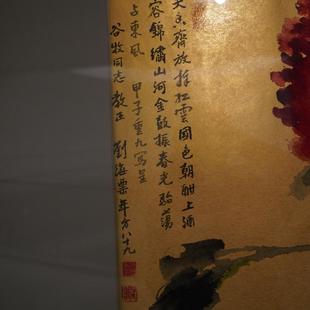 天香齊放紅雲國色朝酣上酒
容錦繡山河金鼓振春光駘蕩
占東風 甲子重九寫呈
谷牧同志教正 劉海粟年方八十九